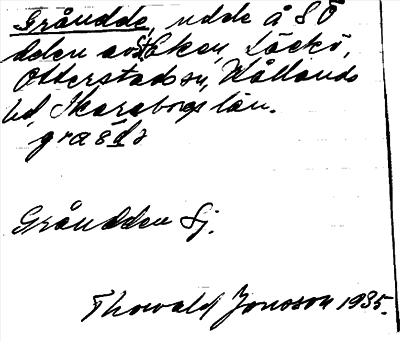 Gråudde, udde å SO
delen av Eken, Läckö,
Otterstads sn, Kållands
hd, Skaraborgs län.
Gråudden Sj.
Thorvald Jonsson 1935.